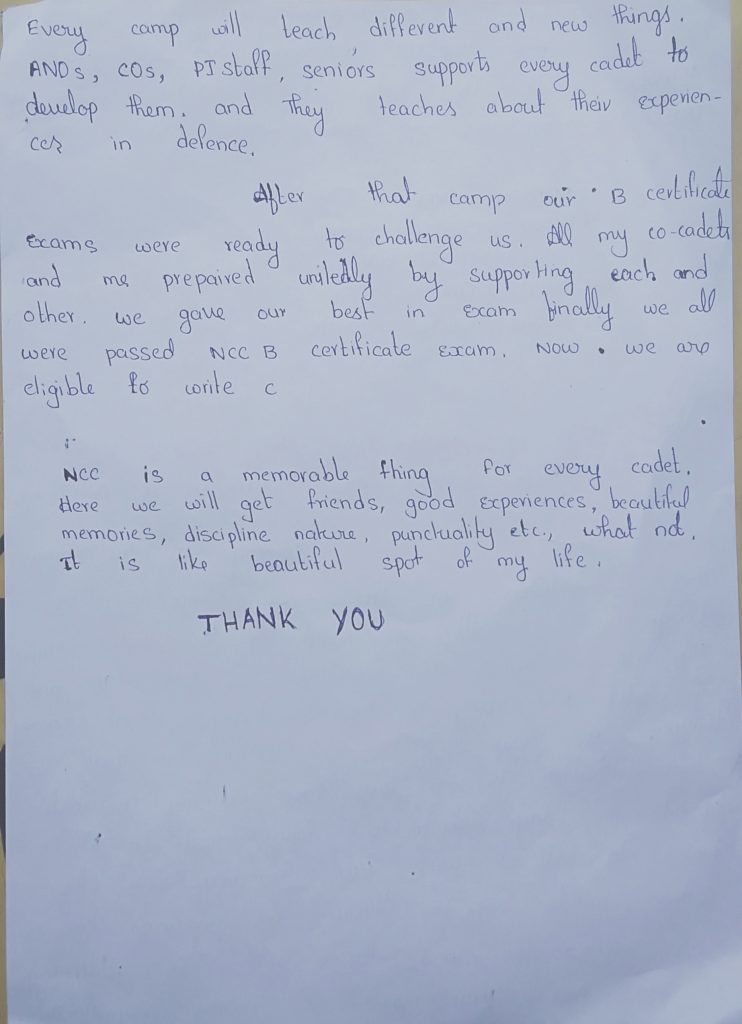 Every camp will teach different and new things.
ANOs, COs, PI staff, seniors supports every cadet to
develop them. and They teaches about their experien-
ces in defence.
After that camp our B certificate
Exams were ready to challenge us. All my co-cadets
and me prepaired unitedly by supporting each and
other. we gave our best in exam finally we all
were passed NCC B certificate exam. Now we are
eligible to write c
NCC is a memorable thing for every cadet.
Here we will get friends, good experiences, beautiful
memories, discipline nature, punctuality etc., what not.
It is like beautiful spot of my life.
THANK YOU